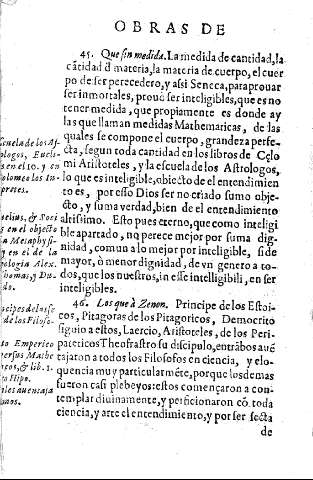 OBRAS DE
45. Que sin medida. La medida de cantidad, la
cãtidad đ materia, la materia de cuerpo, el cuer
po de ser perecedero, y assi Seneca, para prouar
ser inmortales, prouó ser inteligibles, que es no
tener medida, que propiamente es donde ay
las que llaman medidas Mathematicas, de las
quales se compone el cuerpo, grandeza perfe-
cta, segun toda cantidad en los libros de Cęlo
mi Aristoteles, y la escuela de los Astrologos,
lo que es inteligible, obiecto de el entendimien
to es, por esso Dios ser no criado sumo obje-
cto, y suma verdad, bien de el entendimiento
altissimo. Esto pues eterno, que como inteligi
ble apartado, nq perece mejor por suma dig-
nidad, comun a lo mejor por inteligible, si de
mayor, ò menor dignidad, de vn genero a to-
dos, que los nuestros, in esse intelligibili, en ser
inteligibles.
46. Los que à Zenon. Principe de los Estoi-
cos, Pitagoras de los Pitagoricos, Democrito
siguio a estos, Laercio, Aristoteles, de los Peri-
pateticos Theofrastro su discipulo, entrãbos auẽ
tajaron a todos los Filosofos en ciencia, y elo-
quencia muy particularmẽte, porque los demas
fueron casi plebeyos: estos començaron a con-
templar diuinamente, y perficionaron cõ toda
ciencia, y arte el entendimiento, y por ser secta
de
cuela de los As
ologos, Eucli
s en el 10. y en
olomeo los in-
pretes.
en el objecto
a Metaphysi
y en el de la
ologia Alex.
homas, y Du-
do.
ncipes de las se
de los Filoso-
to Emperico
ersus Mathe
icos, & lib. 1.